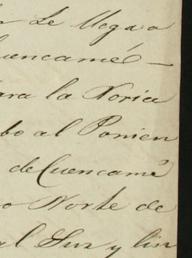 se llega a
uencamé —
ara la Noria
bo al Ponien
de Cuencamé
o Norte de
al Sur y lin